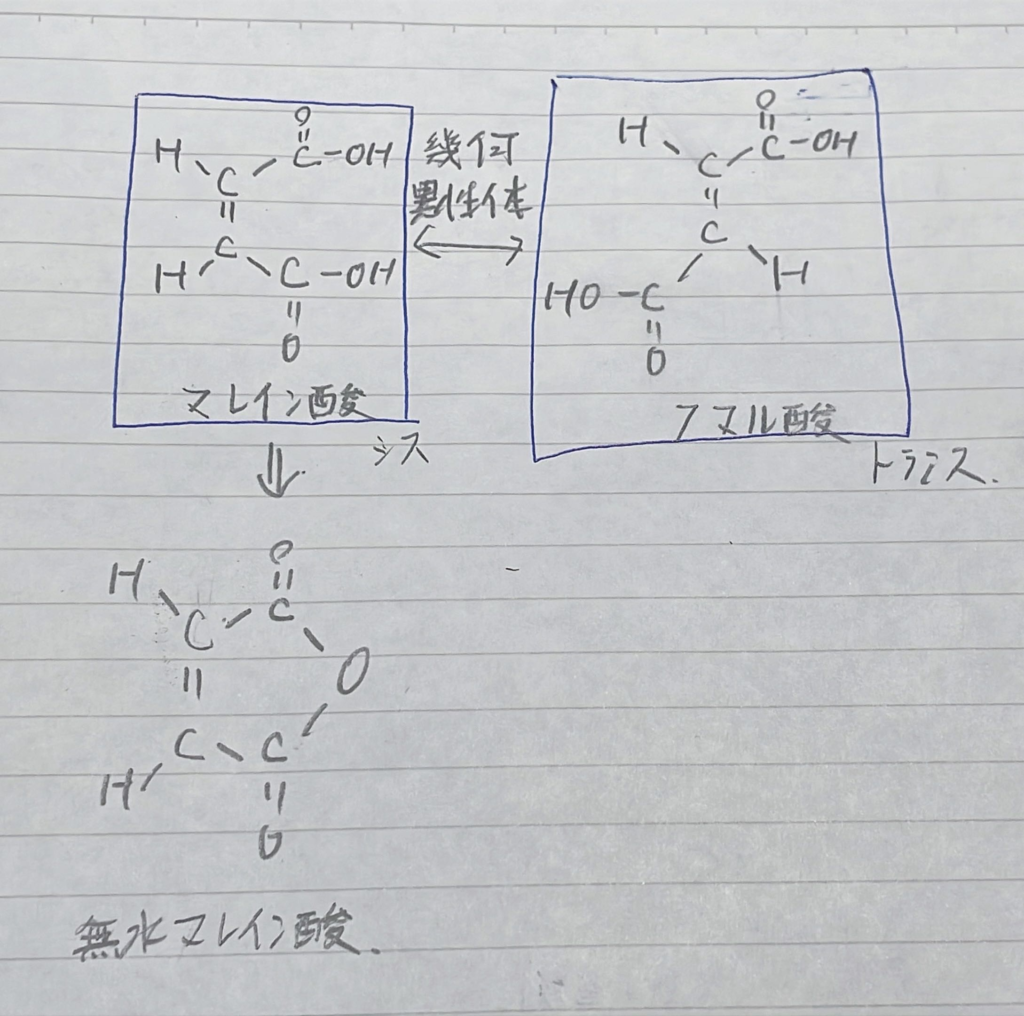 O
H C-OH
C
C
H C-OH
O
マレイン酸
シス
幾何
異性体
O
H C-OH
C
C
HO-C H
O
フマル酸
トランス.
O
H C
C O
C C
H O
無水マレイン酸.